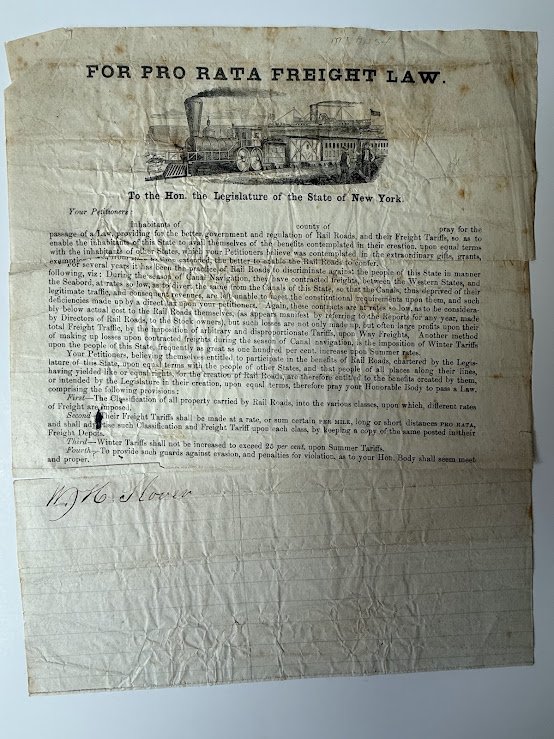 FOR PRO RATA FREIGHT LAW.
To the Hon. the Legislature of the State of New York.
Your Petitioners:
Inhabitants of county of pray for the
passage of a Law, providing for the better government and regulation of Rail Roads, and their Freight Tariffs, so as to
enable the inhabitants of this State to avail themselves of the benefits contemplated in their creation, upon equal terms
with the inhabitants of other States, which your Petitioners believe was contemplated in the extraordinary gifts, grants,
extended, the better to enable the Rail Roads to confer.
For several years it has been the practice of Rail Roads to discriminate against the people of this State in manner
following, viz: During the season of Canal Navigation, they have contracted Freights, between the Western States, and
the Seabord, at rates so low, as to divert the same from the Canals of this State, so that the Canals, thus deprived of their
legitimate traffic, and consequent revenues, are left unable to meet the constitutional requirements upon them, and such
deficiencies made up by a direct tax upon your petitioners. Again, these contracts are at rates so low, as to be considera-
bly below actual cost to the Rail Roads themselves, (as appears manifest by referring to the Reports for any year, made
by Directors of Rail Roads, to the Stock owners), but such losses are not only made up, but often large profits upon their
total Freight Traffic, by the imposition of arbitrary and disproportionate Tariffs, upon Way Freights. Another method
of making up losses upon contracted freights during the season of Canal navigation, is the imposition of Winter Tariffs
upon the people of this State, frequently as great as one hundred per cent. increase upon Summer rates.
Your Petitioners, believing themselves entitled to participate in the benefits of Rail Roads, chartered by the Legis-
lature of this State, upon equal terms with the people of other States, and that people of all places along their lines,
having yielded like or equal rights, for the creation of Rail Roads, are therefore entitled to the benefits created by them,
or intended by the Legislature in their creation, upon equal terms, therefore pray your Honorable Body to pass a Law,
comprising the following provisions:
First—The Classification of all property carried by Rail Roads, into the various classes, upon which, different rates
of Freight are imposed.
Second—Their Freight Tariffs shall be made at a rate, or sum certain PER MILE, long or short distances PRO RATA,
and shall such Classification and Freight Tariff upon each class, by keeping a copy of the same posted in their
Freight Depots.
Third—Winter Tariffs shall not be increased to exceed 25 per cent, upon Summer Tariffs.
Fourth—To provide such guards against evasion, and penalties for violation, as to your Hon. Body shall seem meet
and proper.